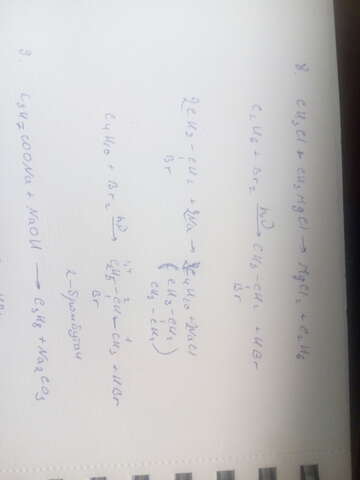 8. CH₃Cl + CH₃MgCl → MgCl₂ + C₂H₆
C₂H₆ + Br₂ hν→ CH₃-CH₂ + HBr
Br
2CH₃-CH₂ + 2Na → C₄H₁₀ + NaCl
Br
(CH₃-CH₂
CH₃-CH₂)
C₄H₁₀ + Br₂ hν→ CH₃-CH-CH₃ + HBr
Br
2-бромбутан
9. C₃H₇COONa + NaOH → C₃H₈ + Na₂CO₃